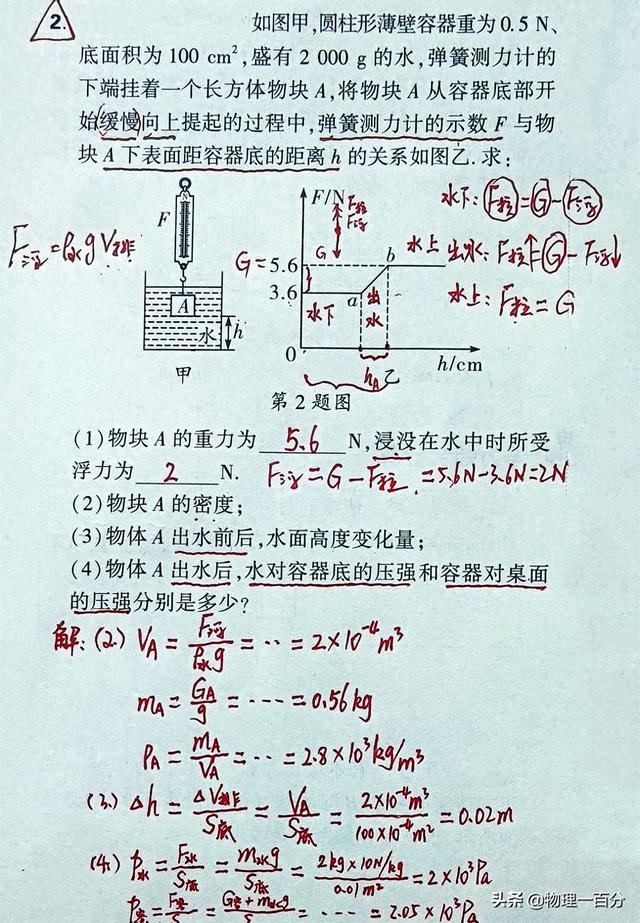 2.
如图甲,圆柱形薄壁容器重为0.5 N、
底面积为100 cm²,盛有2 000 g的水,弹簧测力计的
下端挂着一个长方体物块A,将物块A从容器底部开
始(缓慢)向上提起的过程中,弹簧测力计的示数F与物
块A下表面距容器底的距离h的关系如图乙.求:
F浮=ρ水gV排
F
A
水
h
甲
F/N
F拉
F浮
G
G=5.6
3.6
水下
a
出水
b
水上
0
h/cm
hA
乙
水下:F拉=G-F浮
出水:F拉↑=G-F浮↓
水上:F拉=G
第2题图
(1)物块A的重力为 5.6 N,浸没在水中时所受
浮力为 2 N. F浮=G-F拉=5.6N-3.6N=2N
(2)物块A的密度;
(3)物体A出水前后,水面高度变化量;
(4)物体A出水后,水对容器底的压强和容器对桌面
的压强分别是多少?
解:(2) VA=F浮/ρ水g=…=2×10⁻⁴m³
mA=GA/g=……=0.56kg
ρA=mA/VA=…=2.8×10³kg/m³
(3) Δh=ΔV排/S底=VA/S底=2×10⁻⁴m³/100×10⁻⁴m²=0.02m
(4) p水=F水/S底=m水g/S底=2kg×10N/kg/0.01m²=2×10³Pa
p容=F容/S=G容+m水g/S=……=2.05×10³Pa
头条@物理一百分